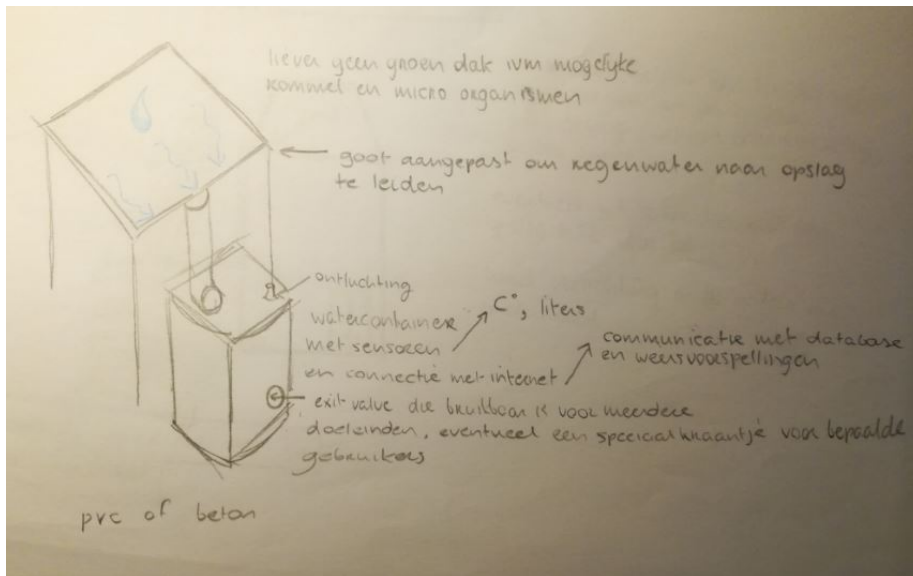 liever geen groen dak ivm mogelijke
rommel en micro organismen
goot aangepast om regenwater naar opslag
te leiden
ontluchting
watercontainer
met sensoren
C°, liters
en connectie met internet
communicatie met database
en weersvoorspellingen
exit valve die bruikbaar is voor meerdere
doeleinden, eventueel een speciaal kraantje voor bepaalde
gebruikers
pvc of beton